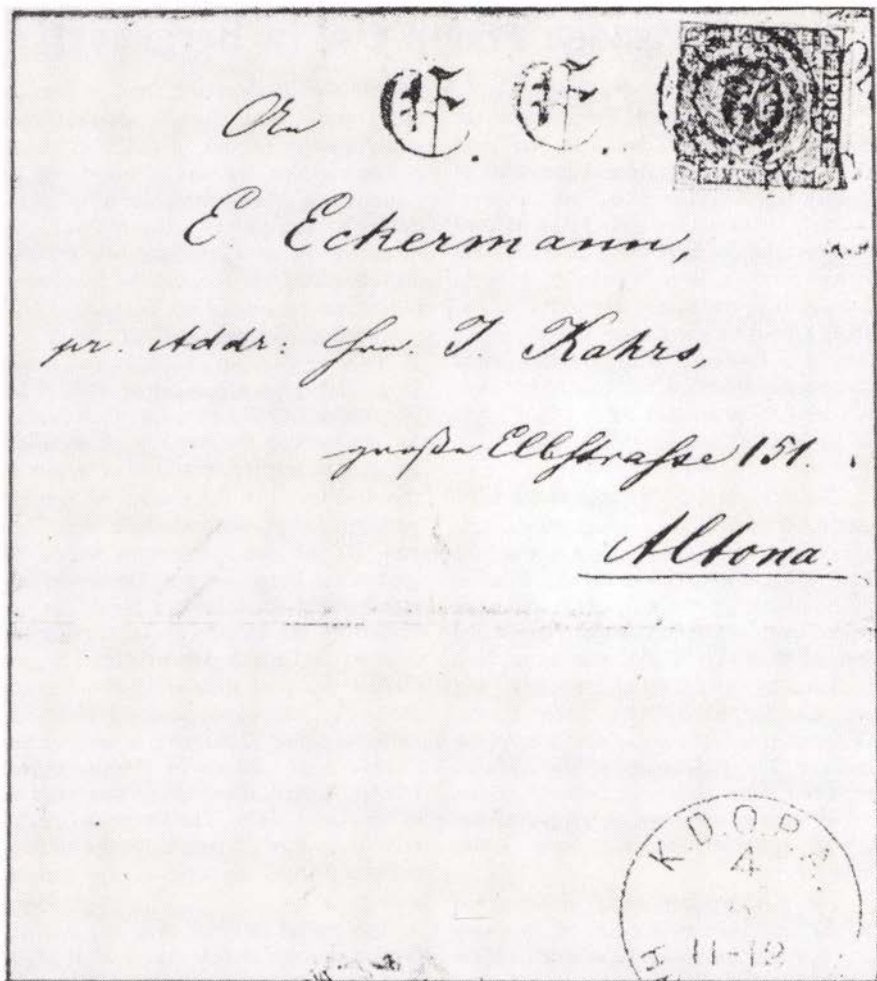 An E. E.
E Eckermann,
pr. Addr: Hrn. J Kahrs,
große Elbstrasse 151.
Altona.
K.D.O.P.A.
4
11-12
H